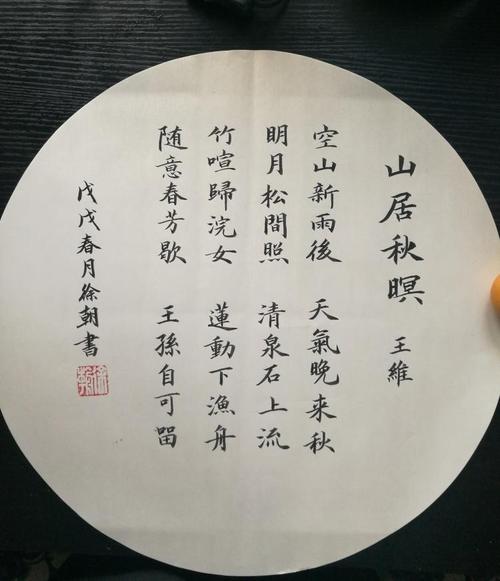 山居秋暝 王維
空山新雨後 天氣晚来秋
明月松間照 清泉石上流
竹喧歸浣女 蓮動下漁舟
随意春芳歇 王孫自可畱
戊戌春月徐朝書